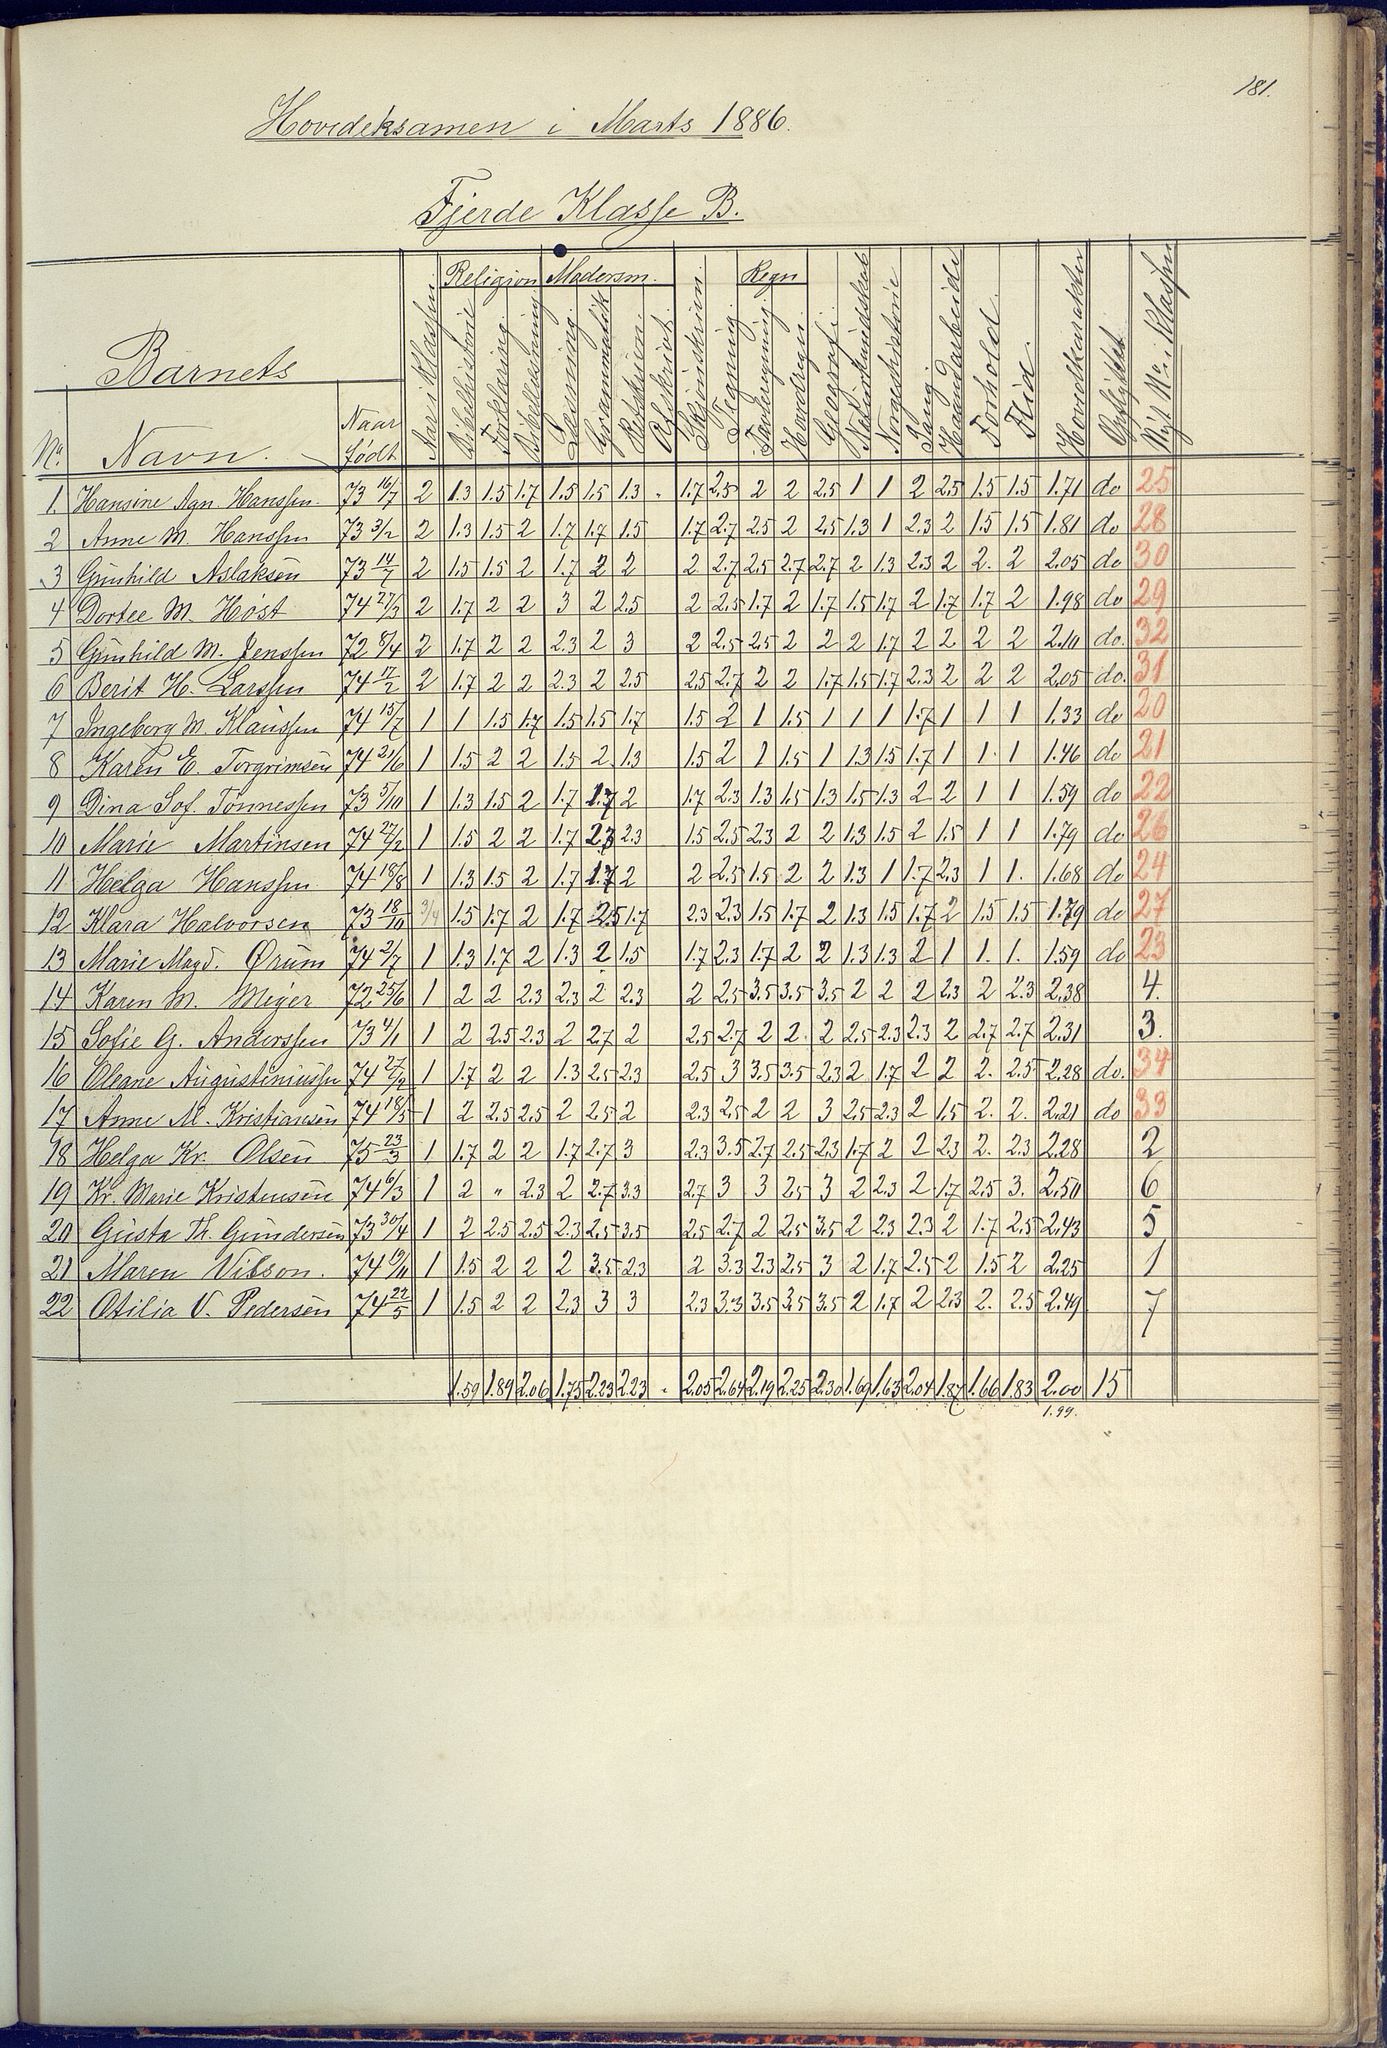 181.
Hovedeksamen i Marts 1886.
Fjerde Klasse B.
Religion Modersm. Regn
Barnets
No. Navn. Naar Født Aar i Klassen Bibelhistorie Forklaring Bibellæsning Læsning Grammatik Retskrivn. Afskrivt. Skjønskrivn. Tegning. Tavleregning. Hovdregn. Geografi Naturkundskab Norgeshistorie Sang. Haandarbeide Forhold. Flid. Hovedkarakter Opflyttet Nyt No. i Klassen
1. Hansine Agn. Hanssen. 73 16/7 2 1.3 1.5 1.7 1.5 1.5 1.3 . 1.7 2.5 2 2 2.5 1 1 2 2.5 1.5 1.5 1.71 do 25
2 Anne M. Hanssen 73 3/2 2 1.3 1.5 2 1.7 1.7 1.5 1.7 2.7 2.5 2 2.5 1.3 1 2.3 2 1.5 1.5 1.81 do 28
3 Gunhild Aslaksen 73 14/7 2 1.5 1.5 2 1.7 2 2 2 2.7 2.5 2.7 2.7 2 1.3 2.3 2 2. 2 2.05 do 30
4 Dortee M. Høst 74 27/3 2 1.7 2 2 3 2 2.5 2 2.5 1.7 2 1.7 1.5 1.7 2 1.7 1.7 2 1.98 do 29
5 Gunhild M. Jenssen 72 8/4 2 1.7 2 2 2.3 2 3 2 2.5 2.5 2 2 2 1.7 2 2 2 2 2.10 do. 32
6 Berit H. Larssen 74 17/2 2 1.7 2 2 2.3 2 2.5 2.5 2.7 2 2 1.7 1.5 1.7 2.3 2 2 2 2.05 do. 31
7 Ingeborg M. Klaussen 74 15/7 1 1 1.5 1.7 1.5 1.5 1.7 1.5 2 1 1.5 1 1 1 1.7 1 1 1 1.33 do 20
8 Karen E. Torgrimsen 74 21/6 1 1.5 2 2 1.5 2 1.3 1.5 2 1 1.5 1 1.3 1.5 1.7 1 1 1 1.46 do 21
9 Dina Sof. Tønnessen 73 5/10 1 1.3 1.5 2 1.7 1.7 2 1.7 2.3 1.3 1.5 1.3 1.5 1.3 2 2 1 1 1.59 do 22
10 Marie Martinsen 74 27/2 1 1.5 2 2 1.7 2.3 2.3 1.5 2.5 2.3 2 2 1.3 1.5 2 1.5 1 1 1.79 do 26
11 Helga Hanssen. 74 18/8 1 1.3 1.5 2 1.7 1.7 2 2 2.5 1.5 2 2 1.3 1 1.7 2.3 1 1. 1.68 do 24
12 Klara Halvorsen 73 18/10 3/4 1.5 1.7 2 1.7 2.5 1.7 2.3 2.3 1.5 1.7 2 1.3 1.5 1.7 2 1.5 1.5 1.79 do 27
13 Marie Magd. Ørum 74 2/7 1 1.3 1.7 2 1.3 2 1.5 1.7 2.3 1.7 2 2 1.3 1.3 2 1 1. 1. 1.59 do 23
14 Karen M. Meyer 72 25/6 1 2 2 2.3 2.3 2 2.3 2 2.5 3.5 3.5 3.5 2 2 2 2.3 2 2.3 2.38 4.
15 Sofie G. Anderssen 73 4/1 1 2 2.5 2.3 2 2.7 2 2.5 2.7 2 2. 2 2.5 2.3 2.3 2 2.7 2.7 2.31 3.
16 Oleane Augustiniussen 74 27/2 1 1.7 2 2 1.3 2.5 2.3 2.5 3 3.5 3.5 2.3 2 1.7 2 2 2. 2.5 2.28 do. 34
17 Anne M. Kristiansen 74 18/5 1 2 2.5 2.5 2 2.5 2 2.3 2.5 2 2 3 2.5 2.3 2 1.5 2. 2. 2.21 do 33
18 Helga Kr. Olsen 75 23/3 1 1.7 2 2 1.7 2.7 3 2.3 3.5 2.7 2.5 2.3 1.7 2 2 2.3 2. 2.3 2.28 2
19 Kr. Marie Kristensen 74 6/3 1 2 " 2.3 2 2.7 3.3 2.7 3 3 2.5 3 2 2.3 2 1.7 2.5 3. 2.50 6
20 Gusta Th. Gundersen 73 30/4 1 2 2.5 2.5 2.3 2.5 3.5 2.5 2.7 2 2.5 3.5 2 2.3 2.3 2 1.7 2.5 2.43 5
21 Maren Vibson. 74 19/11 1 1.5 2 2 2 3.5 2.3 2 3.3 2.3 2.5 3 2 1.7 2.5 2 1.5 2 2.25 1
22 Otilia V. Pedersen 74 22/5 1 1.5 2 2 2.3 3 3 2.3 3.3 3.5 3.5 3.5 2 1.7 2 2.3 2. 2.5 2.49 7
1.59 1.89 2.06 1.75 2.23 2.23 . 2.05 2.64 2.19 2.25 2.30 1.69 1.63 2.04 1.87 1.66 1.83 2.00 15
1.99.